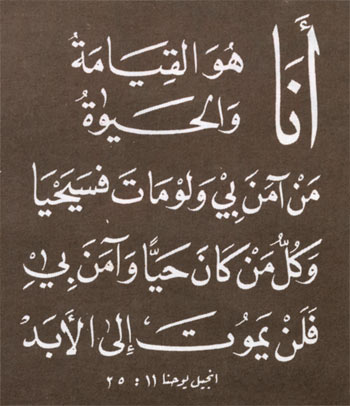 أَنَا هُوَ القِيَامَةُ
وَالحَيٰوةُ
مَنْ آمَنَ بِي وَلَوْ مَاتَ فَسَيَحْيَا
وَكُلُّ مَنْ كَانَ حَيًّا وَآمَنَ بِي
فَلَنْ يَمُوتَ إِلَى الأَبَدْ
انجيل يوحنا ١١ : ٢٥